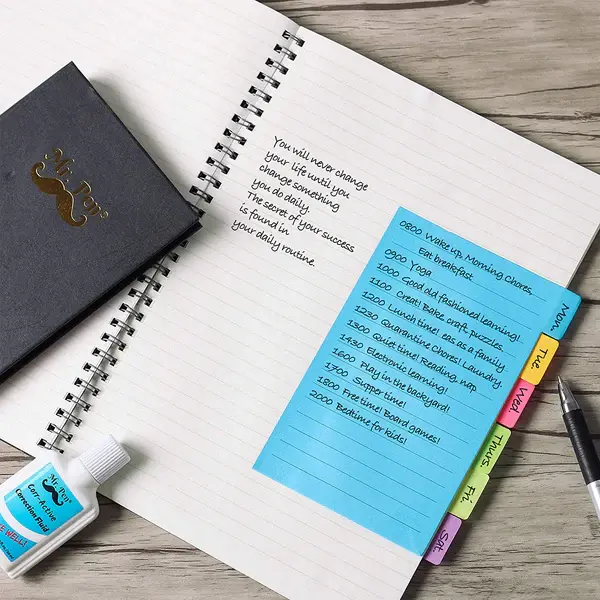 Mr. Pen®
You will never change
your life until you
change something
you do daily.
The secret of your success
is found in
your daily routine.
0800 Wake up, Morning Chores,
Eat breakfast
0900 Yoga
1000 Good old fashioned learning!
1100 Creat! Bake craft, puzzles.
1200 Lunch time! eas as a family
1230 Quarantine Chores! Laundry.
1300 Quiet time! Reading, nap
1430 Electronic learning!
1600 Play in the backyard!
1700 Supper time!
1800 Free time! Board games!
2000 Bedtime for kids!
Mon.
Tue.
Wed.
Thurs.
Fri.
Sat.
Mr. Pen®
Corr-Active
Correction Fluid
WELL!